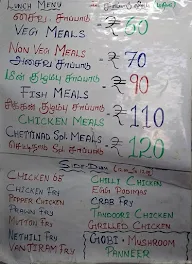 LUNCH MENU
சைவ சாப்பாடு ₹ 50
VEG MEALS
NON VEG MEALS ₹ 70
அசைவ சாப்பாடு
மீன் குழம்பு சாப்பாடு ₹ 90
FISH MEALS
சிக்கன் குழம்பு சாப்பாடு ₹ 110
CHICKEN MEALS
CHETTINAD SPL MEALS ₹ 120
செட்டிநாடு ஸ்பெஷல் சாப்பாடு
SIDE-DISH
CHICKEN 65
CHICKEN FRY
PEPPER CHICKEN
PRAWN FRY
MUTTON FRY
NETHILI FRY
VANJIRAM FRY
CHILLI CHICKEN
EGG PODIMAS
CRAB FRY
TANDOORI CHICKEN
GRILLED CHICKEN
GOBI - MUSHROOM
PANNEER